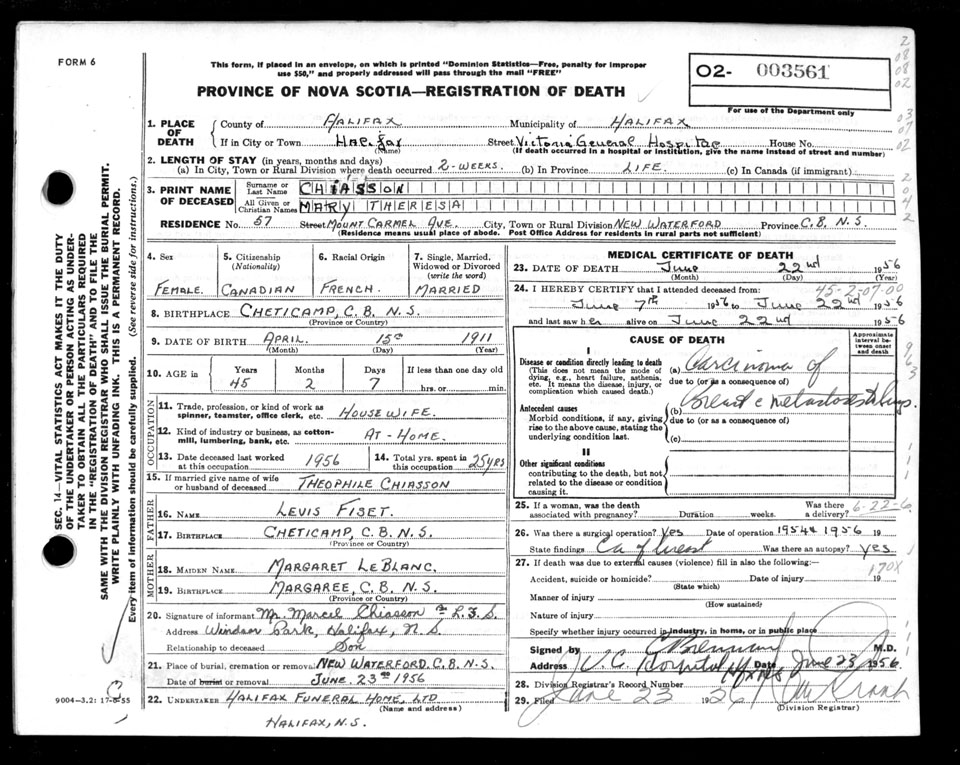 FORM 6
This form, if placed in an envelope, on which is printed "Dominion Statistics—Free, penalty for improper
use $50," and properly addressed will pass through the mail "FREE"
02- 003561
For use of the Department only
PROVINCE OF NOVA SCOTIA—REGISTRATION OF DEATH
1. PLACE OF DEATH County of HALIFAX Municipality of HALIFAX
If in City or Town Halifax (Name) Street Victoria General Hospital House No.
(If death occurred in a hospital or institution, give the name instead of street and number)
2. LENGTH OF STAY (in years, months and days)
(a) In City, Town or Rural Division where death occurred 2-WEEKS. (b) In Province LIFE. (c) In Canada (if immigrant)
3. PRINT NAME OF DECEASED Surname or Last Name CHIASSON
All Given or Christian Names MARY THERESA
RESIDENCE No. 57 Street MOUNT CARMEL AVE. City, Town or Rural Division NEW WATERFORD Province C.B. N.S.
(Residence means usual place of abode. Post Office Address for residents in rural parts not sufficient)
4. Sex FEMALE.
5. Citizenship (Nationality) CANADIAN
6. Racial Origin FRENCH.
7. Single, Married, Widowed or Divorced (write the word) MARRIED
8. BIRTHPLACE CHETICAMP, C.B. N.S.
(Province or Country)
9. DATE OF BIRTH APRIL. 15 1911
(Month) (Day) (Year)
10. AGE in Years Months Days If less than one day old
45 2 7 hrs. or min.
OCCUPATION
11. Trade, profession, or kind of work as spinner, teamster, office clerk, etc. HOUSEWIFE.
12. Kind of industry or business, as cotton-mill, lumbering, bank, etc. AT-HOME.
13. Date deceased last worked at this occupation 1956
14. Total yrs. spent in this occupation 25 YRS
15. If married give name of wife or husband of deceased THEOPHILE CHIASSON
FATHER
16. NAME LEVIS FISET.
17. BIRTHPLACE CHETICAMP, C.B. N.S.
(Province or Country)
MOTHER
18. MAIDEN NAME MARGARET LEBLANC.
19. BIRTHPLACE MARGAREE, C.B. N.S.
(Province or Country)
20. Signature of informant Mr. Marcel Chiasson
Address Windsor Park, Halifax, N.S.
Relationship to deceased Son
21. Place of burial, cremation or removal NEW WATERFORD. C.B. N.S.
Date of burial or removal JUNE. 23 1956
22. UNDERTAKER HALIFAX FUNERAL HOME, LTD
(Name and address)
HALIFAX, N.S.
MEDICAL CERTIFICATE OF DEATH
23. DATE OF DEATH June 22nd 1956
(Month) (Day) (Year)
45-2-07-00
24. I HEREBY CERTIFY that I attended deceased from:
June 7th 1956 to June 22nd 1956
and last saw her alive on June 22nd 1956
CAUSE OF DEATH
Approximate interval between onset and death
I
Disease or condition directly leading to death
(This does not mean the mode of dying, e.g., heart failure, asthenia, etc. It means the disease, injury, or complication which caused death.)
(a) Carcinoma of
due to (or as a consequence of)
Antecedent causes
Morbid conditions, if any, giving rise to the above cause, stating the underlying condition last.
(b) Breast c metastases
due to (or as a consequence of)
(c)
II
Other significant conditions
contributing to the death, but not related to the disease or condition causing it.
25. If a woman, was the death associated with pregnancy? Duration weeks. Was there a delivery?
6-22-6
26. Was there a surgical operation? Yes Date of operation 1954 & 1956 19
State findings Ca of breast Was there an autopsy? Yes
27. If death was due to external causes (violence) fill in also the following:
170X
Accident, suicide or homicide? Date of injury 19
(State which)
Manner of injury
(How sustained)
Nature of injury
Specify whether injury occurred in industry, in home, or in public place
Signed by C Brennan M.D.
Address V.G. Hospital Date June 23 1956
28. Division Registrar's Record Number
29. Filed June 23 1956
(Division Registrar)
SEC. 14—VITAL STATISTICS ACT MAKES IT THE DUTY
OF THE UNDERTAKER OR PERSON ACTING AS UNDER-
TAKER TO OBTAIN ALL THE PARTICULARS REQUIRED
IN THE "REGISTRATION OF DEATH" AND TO FILE THE
SAME WITH THE DIVISION REGISTRAR WHO SHALL ISSUE THE BURIAL PERMIT.
WRITE PLAINLY WITH UNFADING INK. THIS IS A PERMANENT RECORD.
Every item of information should be carefully supplied. (See reverse side for instructions.)
9004-3.2: 17-8-55